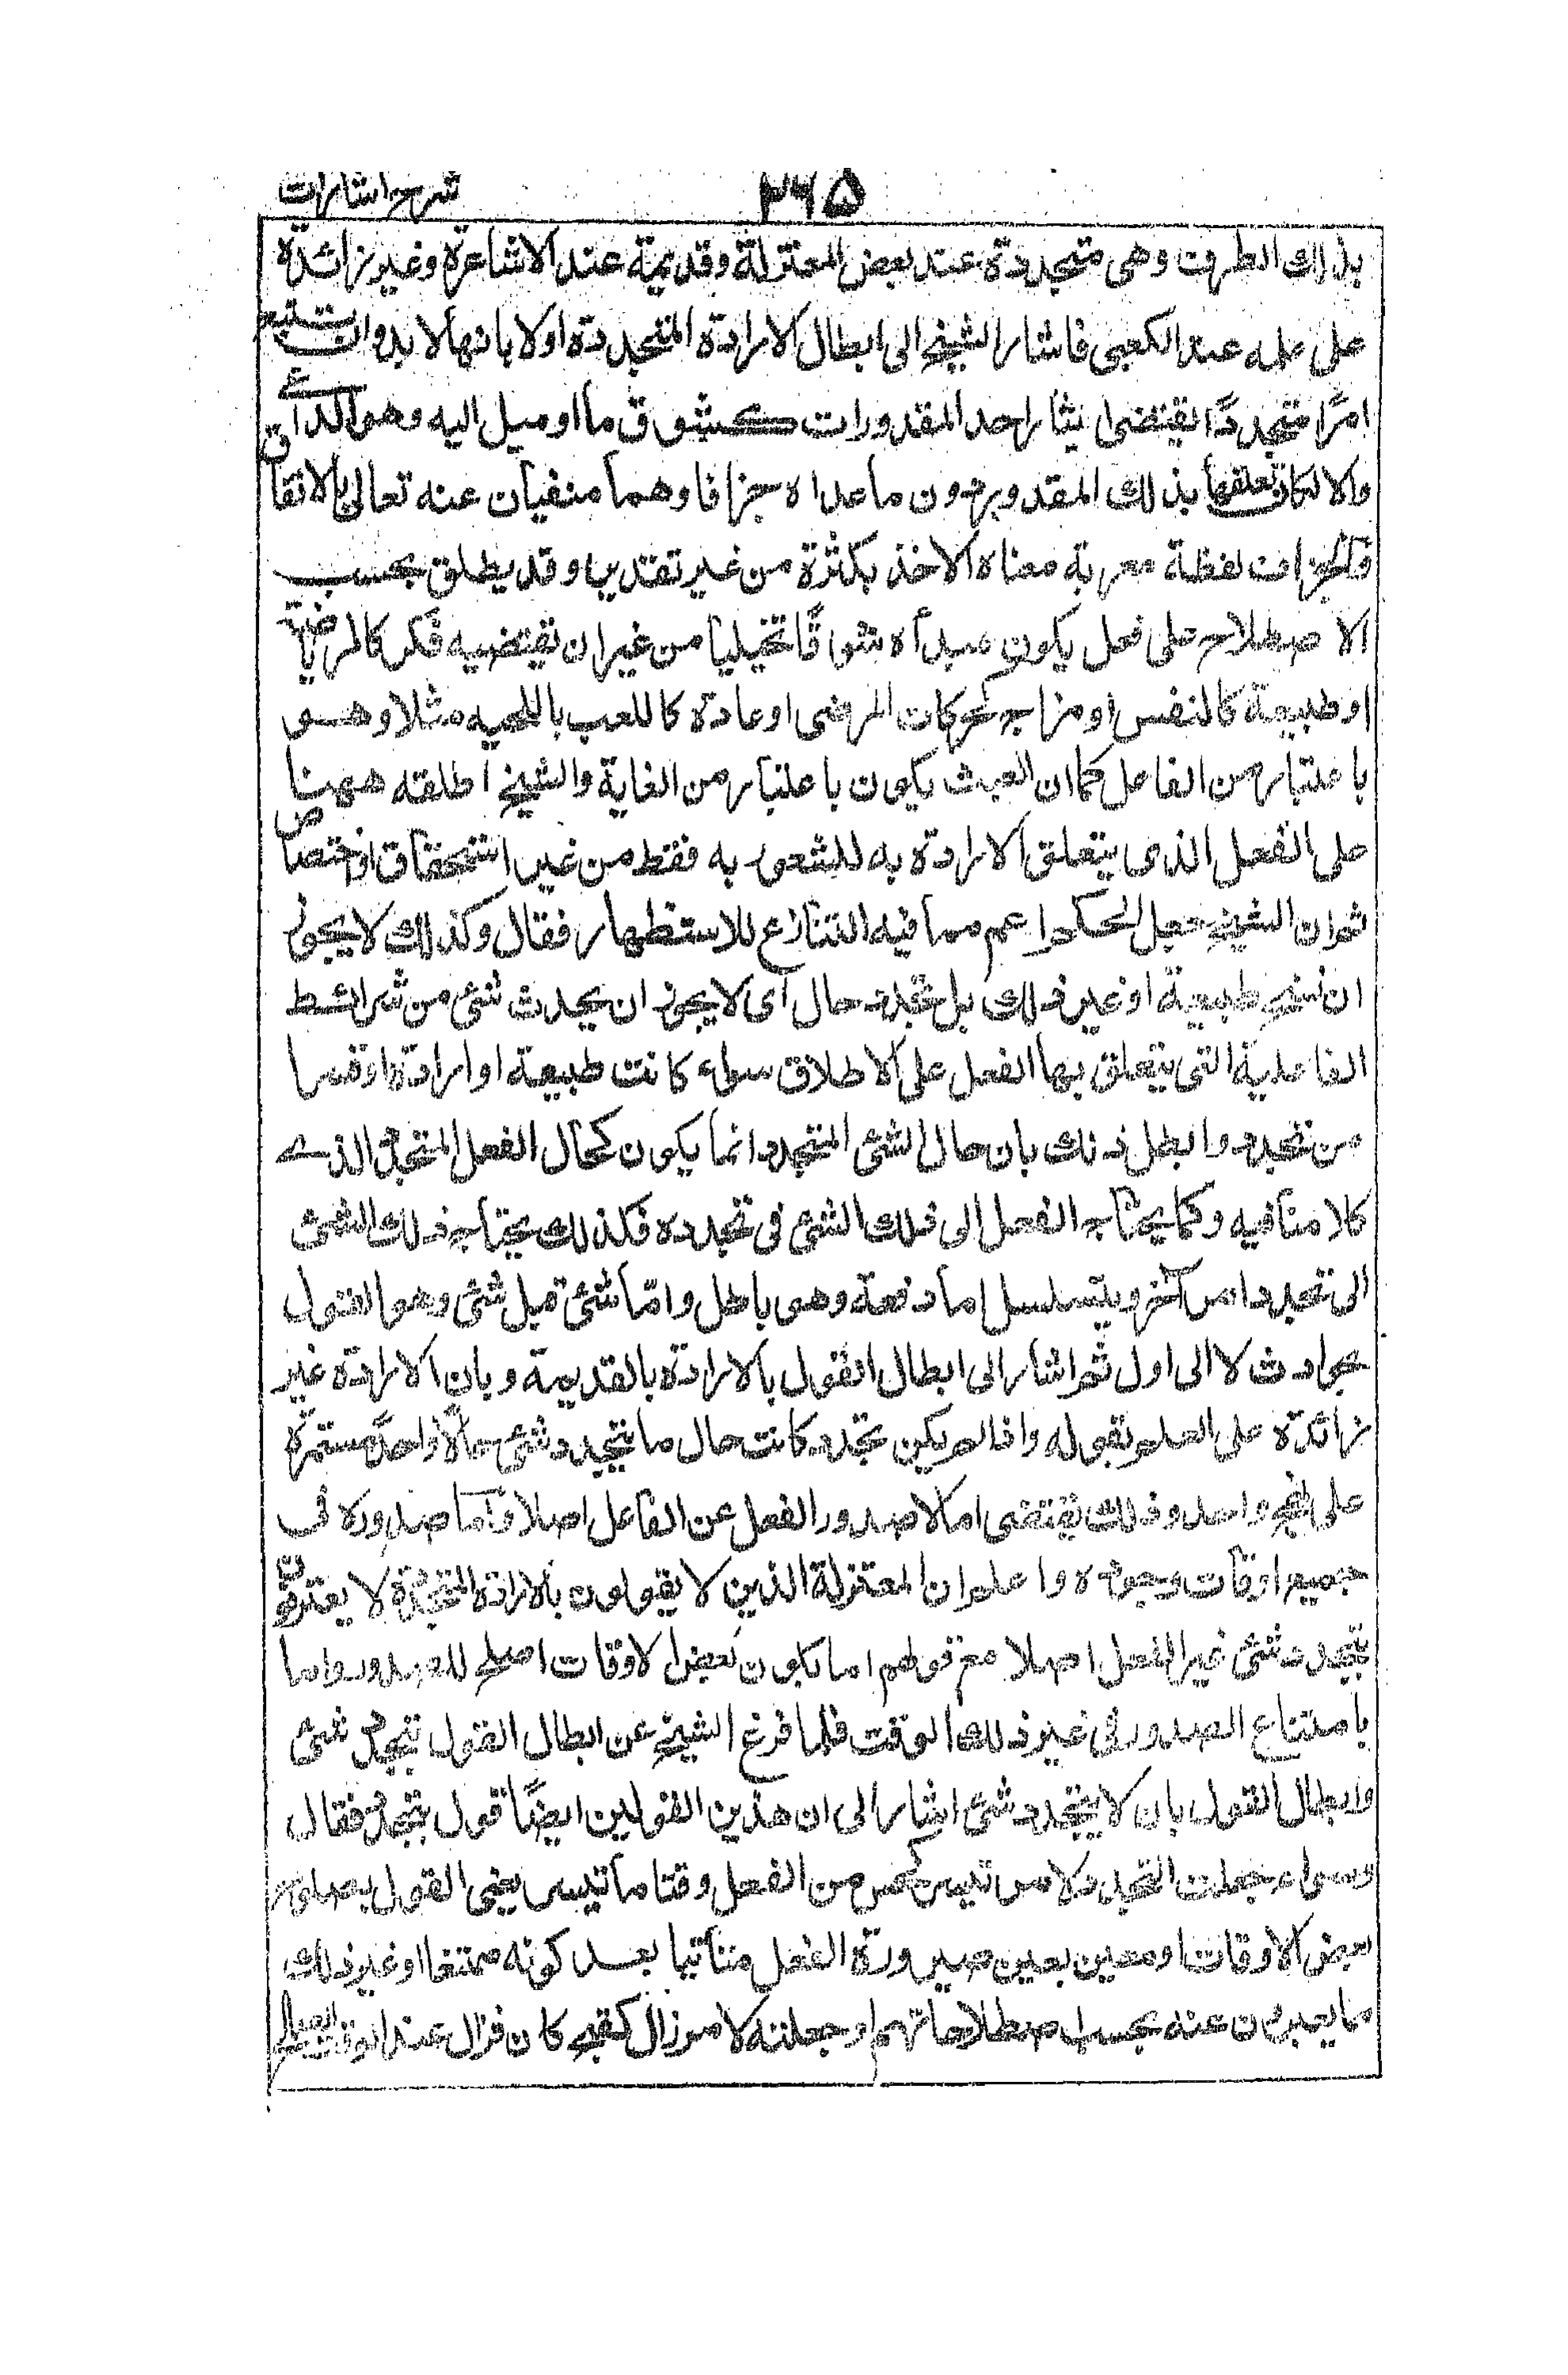 شرح اشارات
٣٦٥
بذلك الطرف وهى متجددة عند بعض المعتزلة وقديمة عند الاشاعرة وغير زائدة
على علمه عند الكعبى فاشار الشيخ الى ابطال الارادة المتجددة اولا بانها لا بد وان تستتبع
امرًا متجددًا يقتضى ايثار احد المقدورات كشوق ما او ميل اليه وهو الداعى
والا لكان تعلقها بذلك المقدور دون ما عداه جزافا وهما منفيان عنه تعالى بالاتفاق
والجزاف لفظة معربة معناه الاخذ بكثرة من غير تقدير وقد يطلق بحسب
الاصطلاح على فعل يكون مبدأه شوقًا تخيليا من غير ان يقتضيه فكر كالرياضة
او طبيعة كالنفس او مزاج كحركات المرضى او عادة كاللعب باللحيه مثلا وهو
باعتبار من الفاعل كما ان العبث يكون باعتبار من الغاية والشيخ اطلقه ههنا
على الفعل الذى يتعلق الارادة به للشعور به فقط من غير استحقاق او اختصاص
ثم ان الشيخ جعل الحكم اعم مما فيه التنازع للاستظهار فقال وكذلك لا يجوز
ان تسنح طبيعة او غير ذلك بل تجدد حال اى لا يجوز ان يحدث شئ من شرائط
الفاعلية التى يتعلق بها الفعل على الاطلاق سواء كانت طبيعة او ارادة او قسرا
من تجدد وابطل ذلك بان حال الشئ المتجدد انما يكون كحال الفعل المتجدد الذے
كلامنا فيه وكما يحتاج الفعل الى ذلك الشئ فى تجدده فكذلك يحتاج ذلك الشئ
الى تجدد امر آخر ويتسلسل اما دفعة وهو باطل واما شئ قبل شئ وهو القول
بحوادث لا الى اول ثم اشار الى ابطال القول بالارادة بالقديمة وبان الارادة غير
زائدة على العلم بقوله واذا لم يكن تجدد كانت حال ما يتجدد شئ حالًا واحدًا مستمرة
على نهج واحد وذلك يقتضى اما لا صدور الفعل عن الفاعل اصلا واما صدوره فى
جميع اوقات وجوده واعلم ان المعتزلة الذين لا يقولون بالارادة المتجددة لا يعترفون
بتجدد شئ غير الفعل اصلا مع قولهم اما بكون بعض الاوقات اصلح للصدور واما
بامتناع الصدور فى غير ذلك الوقت فلما فرغ الشيخ عن ابطال القول بتجدد شئ
وابطال القول بان لا يتجدد شئ اشار الى ان هذين القولين ايضًا قول بتجدد فقال
وسواء جعلت التجدد لامر تيسر من الفعل وقتا ما تيسر يعنى القول بصلوح
بعض الاوقات او معين صيرورة الفعل متأتيا بعد كونه ممتنعا او غير ذلك
مما يعبرون عنه بحسب اصطلاحاتهم او جعلته لامر زال كقبح كان فزال عند الوقت